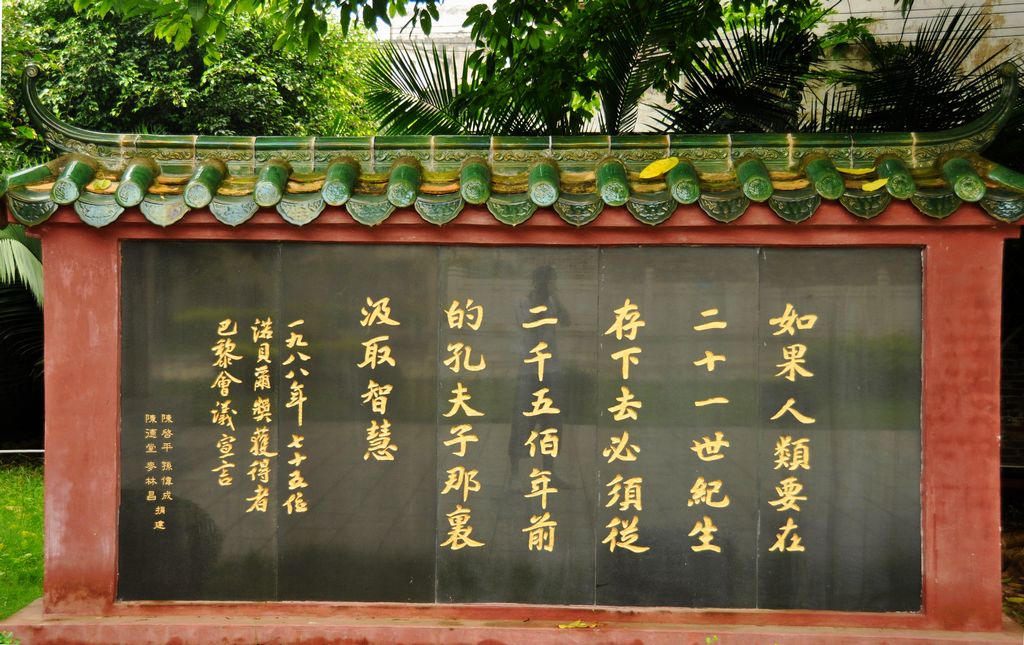 如果人類要在
二十一世紀生
存下去必須從
二千五佰年前
的孔夫子那裏
汲取智慧
一九八八年七十五位
諾貝爾獎獲得者
巴黎會議宣言
陳啓平 孫偉成 捐建
陳德堂 麥林昌